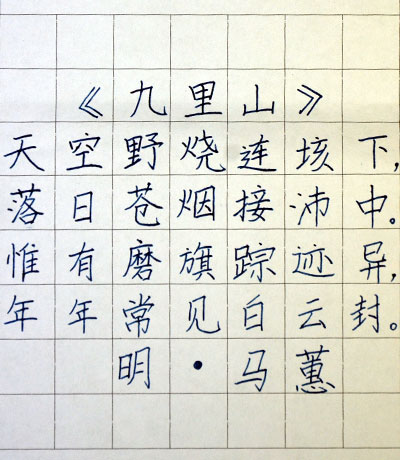 《九里山》
天空野烧连垓下,
落日苍烟接沛中。
惟有磨旗踪迹异,
年年常见白云封。
明·马蕙